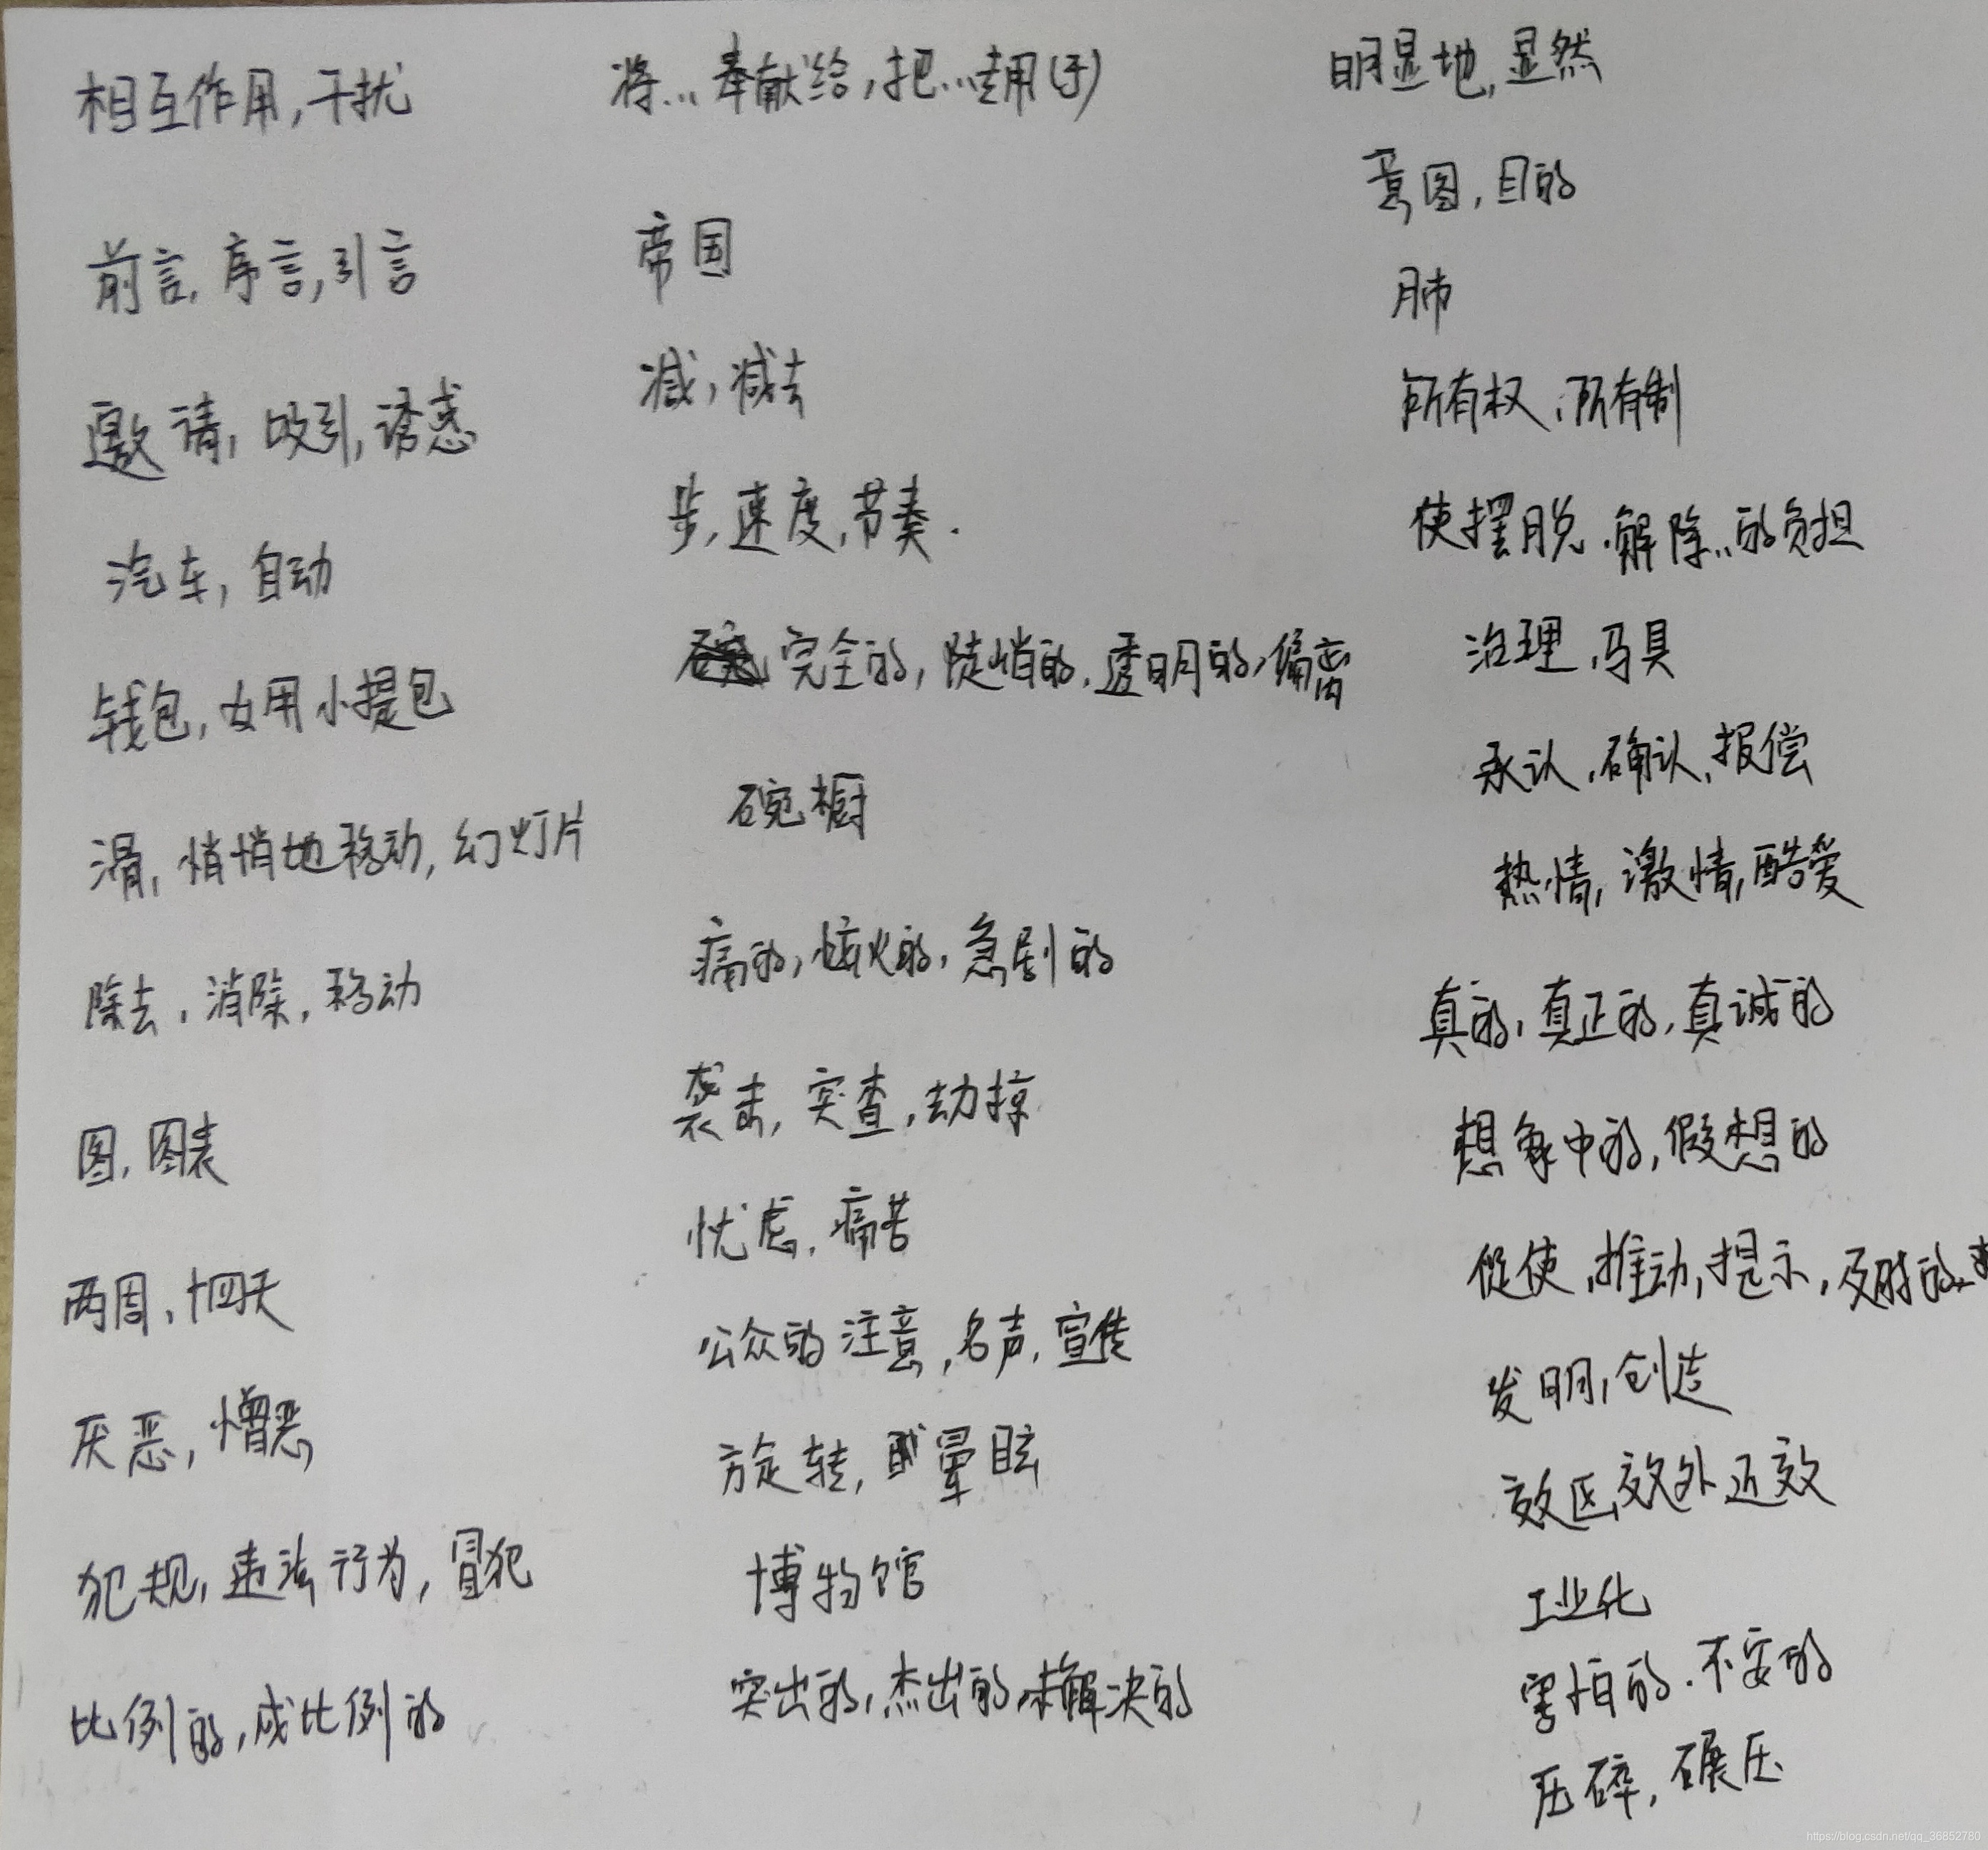 相互作用,干扰
前言,序言,引言
邀请,吸引,诱惑
汽车,自动
钱包,女用小提包
滑,悄悄地移动,幻灯片
除去,消除,移动
图,图表
两周,十四天
厌恶,憎恶
犯规,违法行为,冒犯
比例的,成比例的
将...奉献给,把...用(于)
帝国
减,减去
步,速度,节奏.
完全的,陡峭的,透明的,偏离
碗橱
痛的,恼火的,急剧的
袭击,突查,劫掠
忧虑,痛苦
公众的注意,名声,宣传
旋转,晕眩
博物馆
突出的,杰出的,未解决的
明显地,显然
意图,目的
肺
所有权,所有制
使摆脱.解除...的负担
治理,马具
承认,确认,报偿
热情,激情,酷爱
真的,真正的,真诚的
想象中的,假想的
促使,推动,提示,及时的
发明,创造
效区,效外近效
工业化
害怕的.不安的
压碎,碾压
https://blog.csdn.net/qq_36852780